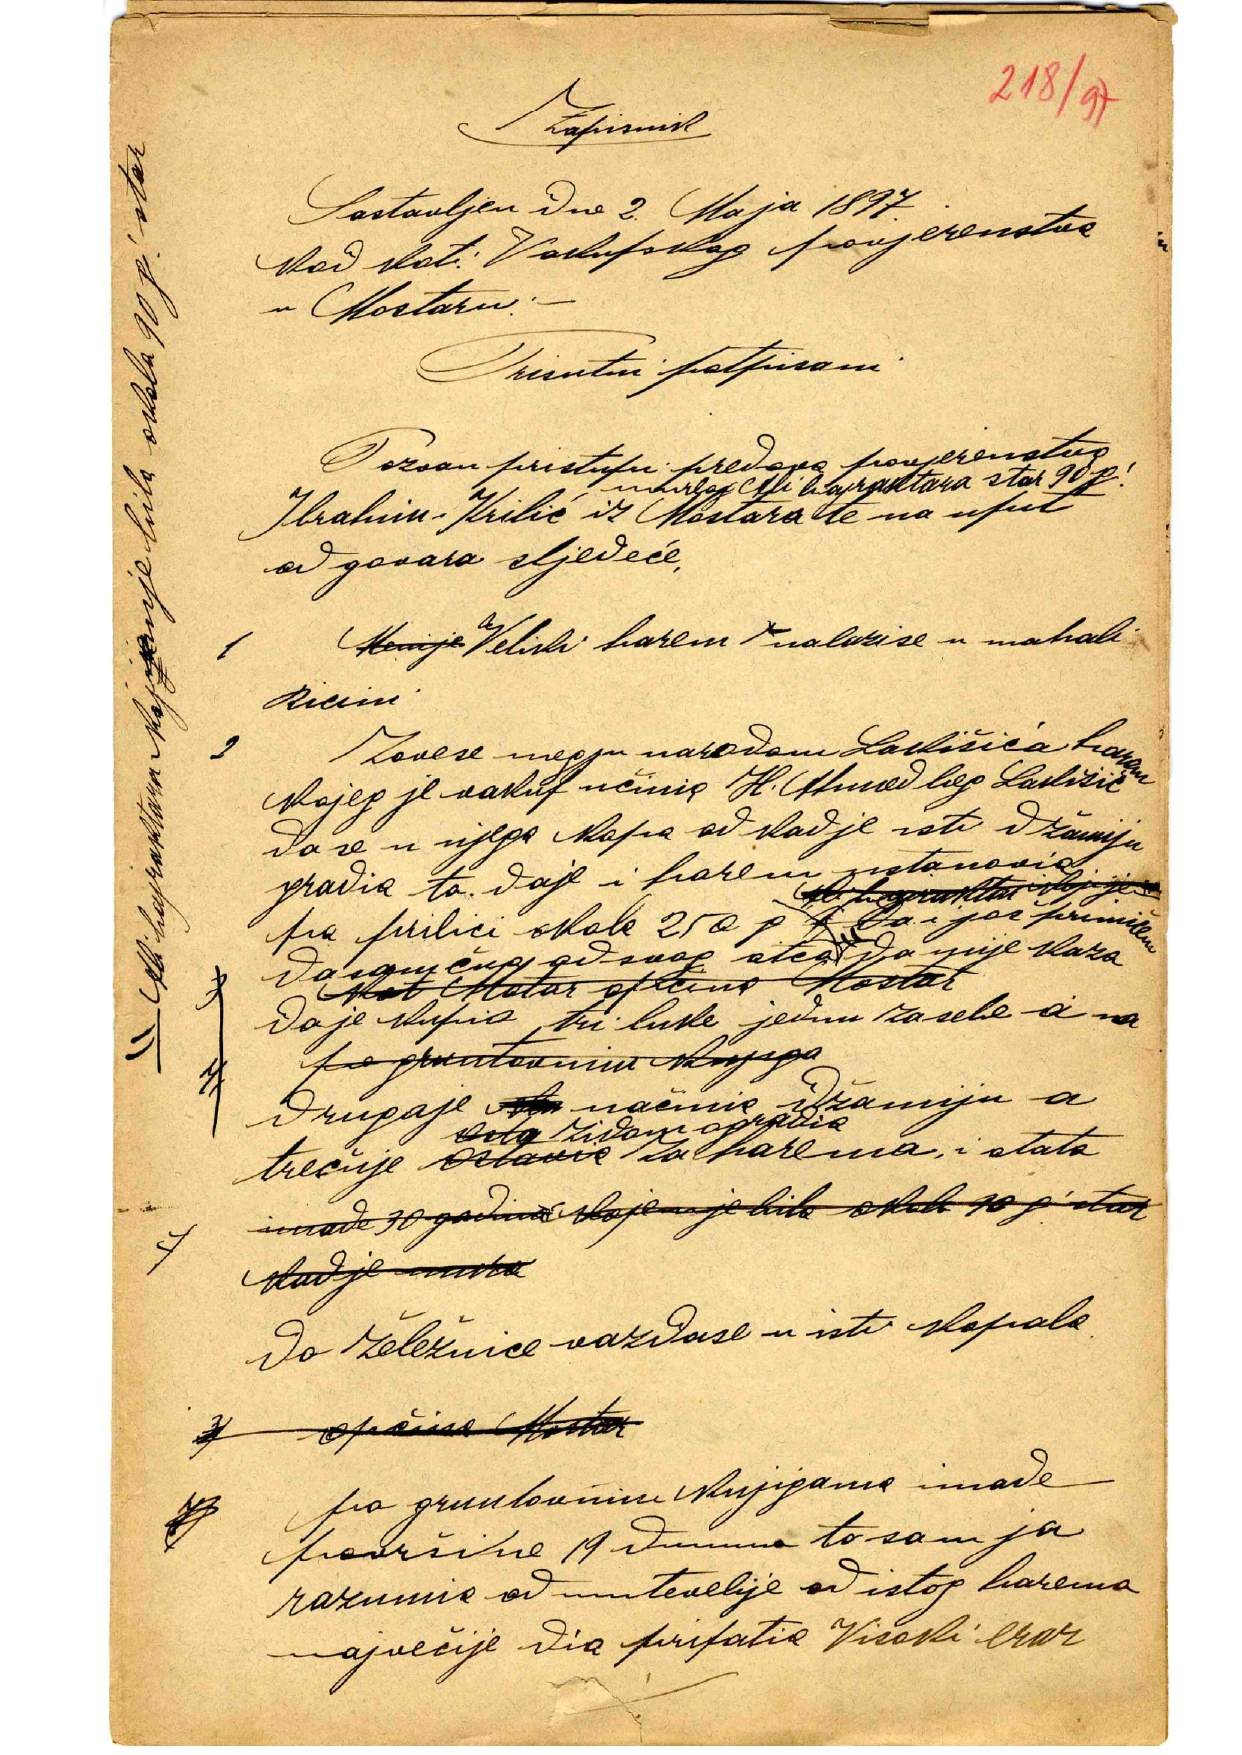 218/97
Zapisnik
Sastavljen dne 2. Maja 1897
kod kot. Vakufskog povjerenstva
u Mostaru. —
Prisutni potpisani
Pozvan pristupi predavo povjerenstvo
star 90 g!
Ibrahim Krilić iz Mostara te na uput
odgovara sljedeće,
1 Veliki harem nalazise u mahali
Ricini
2 Zovese megju narodom Lakišića harem
kojeg je vakuf učinio H. Ahmed beg Lakišić
da se u njega kopa od kad je isti džamiju
gradio to. daje i harem ustanovio
po prilici okolo 250 g
da i jos primičem
dasamčuo od svog otca da mije kazo
Kot Mostar općina Mostar
da je kupio tri luke jednu zasebe a na
po gruntovnim knjiga
drugoje načinio džamiju a
zidom ogradio
trećuje ostavio za harema, i otata
imade 30 godina kojemje bilo okolo 90 g. star
kadje umro
do željeznice vazdase u isti kopalo
3 općina Mostar
4 po gruntovnim knjigama imade
površine 19 dunuma to sam ja
razumio od mutevelije od istog harema
najvećije dio prifatio Visoki erar
Ali bajraktaru kojemje bilo okolo 90 g. star